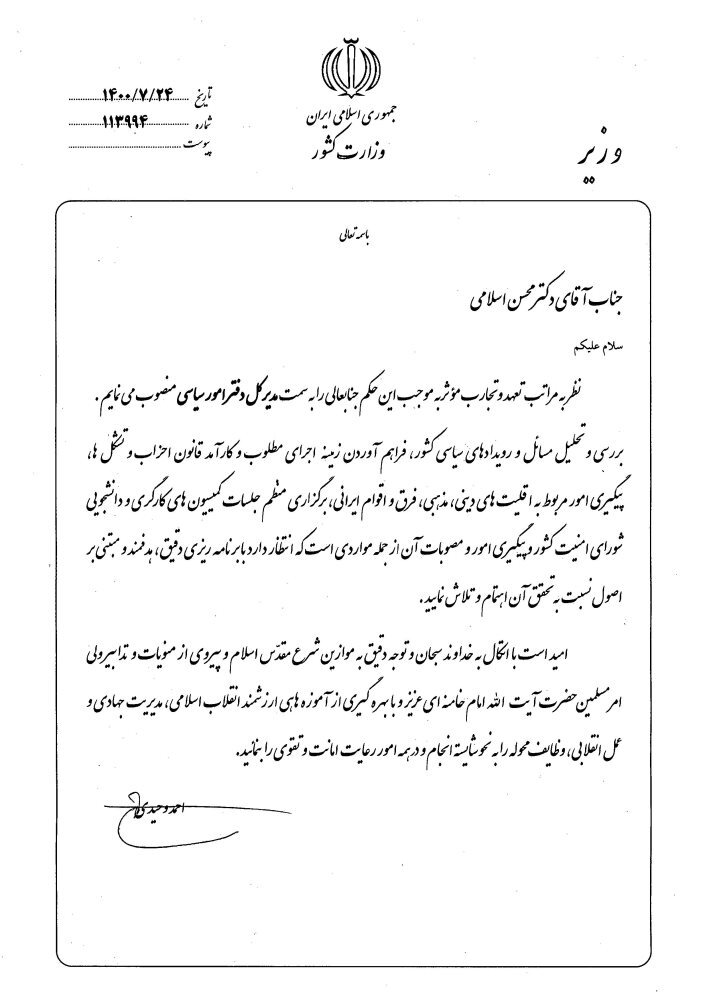 جمهوری اسلامی ایران
وزارت کشور
وزیر
تاریخ ۱۴۰۰/۷/۲۴
شماره ۱۱۳۹۹۴
پیوست
باسمه تعالی
جناب آقای دکتر محسن اسلامی
سلام علیکم
نظر به مراتب تعهد و تجارب مؤثر به موجب این حکم جنابعالی را به سمت مدیرکل دفتر امور سیاسی منصوب می نمایم .
بررسی و تحلیل مسائل و رویدادهای سیاسی کشور، فراهم آوردن زمینه اجرای مطلوب و کارآمد قانون احزاب و تشکل ها،
پیگیری امور مربوط به اقلیت های دینی، مذهبی، فرق و اقوام ایرانی، برگزاری منظم جلسات کمیسیون های کارگری و دانشجویی
شورای امنیت کشور و پیگیری امور و مصوبات آن از جمله مواردی است که انتظار دارد با برنامه ریزی دقیق، هدفمند و مبتنی بر
اصول نسبت به تحقق آن اهتمام و تلاش نمایید .
امید است با اتکال به خداوند سبحان و توجه دقیق به موازین شرع مقدّس اسلام و پیروی از منویات و تدابیر ولی
امر مسلمین حضرت آیت الله امام خامنه ای عزیز و با بهره گیری از آموزه هایی ارزشمند انقلاب اسلامی، مدیریت جهادی و
عمل انقلابی، وظایف محوله را به نحو شایسته انجام و در همه امور رعایت امانت و تقوی را بنمائید.
احمد وحیدی